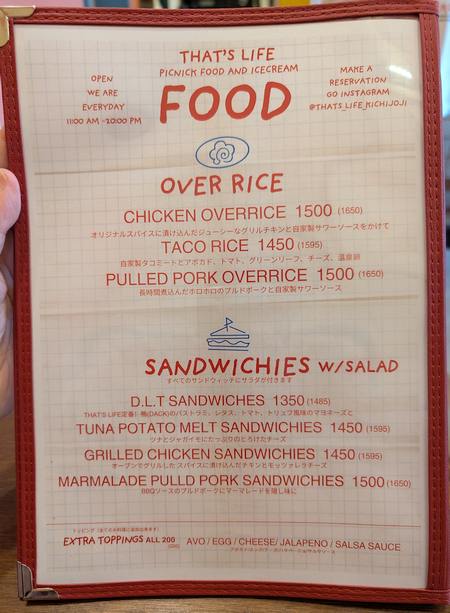 THAT'S LIFE
PICNICK FOOD AND ICECREAM
FOOD
OPEN
WE ARE
EVERYDAY
11:00 AM -20:00 PM
MAKE A
RESERVATION
GO INSTAGRAM
@THATS_LIFE_KICHIJOJI
OVER RICE
CHICKEN OVERRICE 1500 (1650)
オリジナルスパイスに漬け込んだジューシーなグリルチキンと自家製サワーソースをかけて
TACO RICE 1450 (1595)
自家製タコミートとアボカド、トマト、グリーンリーフ、チーズ、温泉卵
PULLED PORK OVERRICE 1500 (1650)
長時間煮込んだホロホロのプルドポークと自家製サワーソース
SANDWICHIES W/SALAD
すべてのサンドウィッチにサラダが付きます
D.L.T SANDWICHES 1350 (1485)
THAT'S LIFE定番！鴨(DACK)のパストラミ、レタス、トマト、トリュフ風味のマヨネーズと
TUNA POTATO MELT SANDWICHIES 1450 (1595)
ツナとジャガイモにたっぷりのとろけたチーズ
GRILLED CHICKEN SANDWICHIES 1450 (1595)
オーブンでグリルした スパイスに漬け込んだチキンとモッツァレラチーズ
MARMALADE PULLD PORK SANDWICHIES 1500 (1650)
BBQソースのプルドポークにマーマレードを隠し味に
トッピング（全てのお料理に追加出来ます）
EXTRA TOPPINGS ALL 200
(220)
AVO / EGG / CHEESE/ JALAPENO / SALSA SAUCE